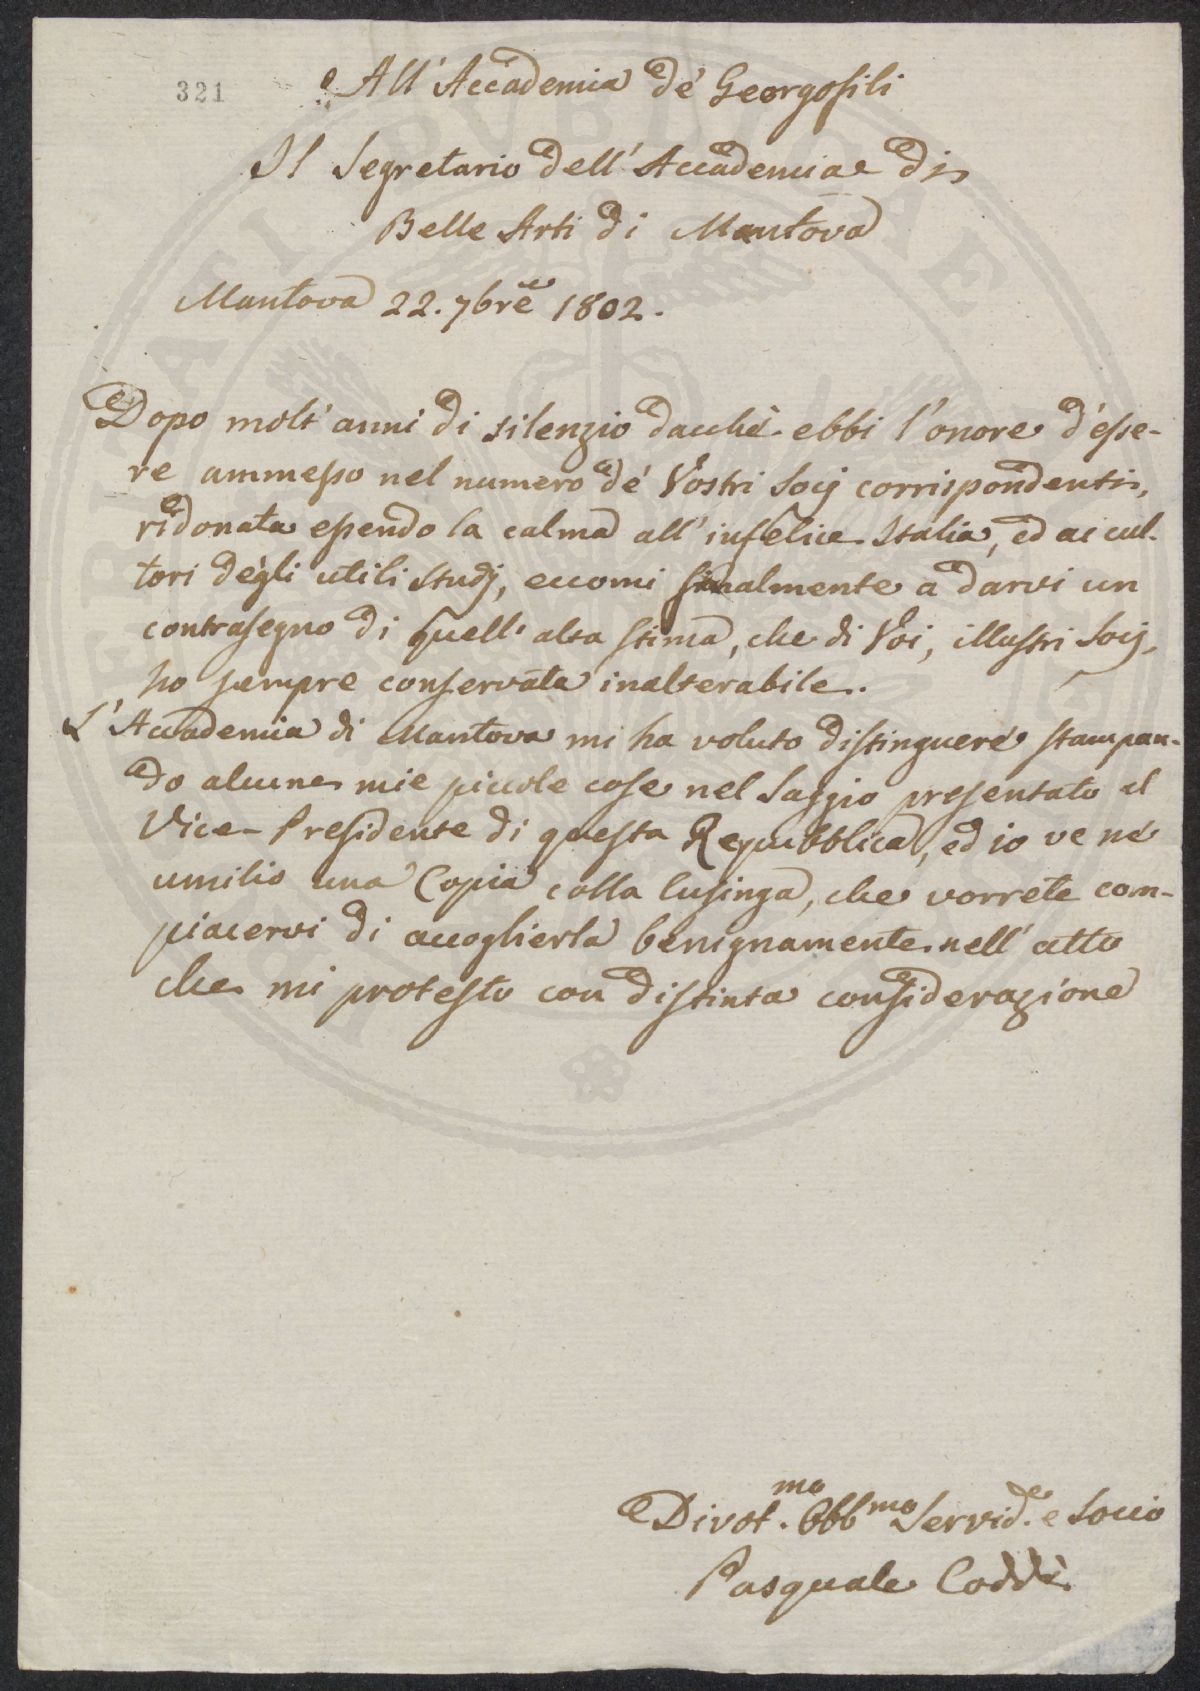 321
All' Accademia de' Georgofili
Il Segretario dell' Accademia di
Belle Arti di Mantova
Mantova 22. 7bre 1802.
Dopo molt' anni di silenzio dacchè ebbi l'onore d'esse-
re ammesso nel numero de' Vostri Socj corrispondenti,
ridonata essendo la calma all' infelice Italia, ed ai cul-
tori degli utili studj, eccomi finalmente a darvi un
contrasegno di quell' alta stima, che di Voi, illustri Socj,
ho sempre conservata inalterabile.
L' Accademia di Mantova mi ha voluto distinguere stampan-
do alcune mie piccole cose nel Saggio presentato al
Vice-Presidente di questa Repubblica, ed io ve ne
umilio una Copia colla lusinga, che vorrete com-
piacervi di accoglierla benignamente nell' atto
che mi protesto con distinta considerazione
Divot.mo Obb.mo Servid.e e Socio
Pasquale Coddè